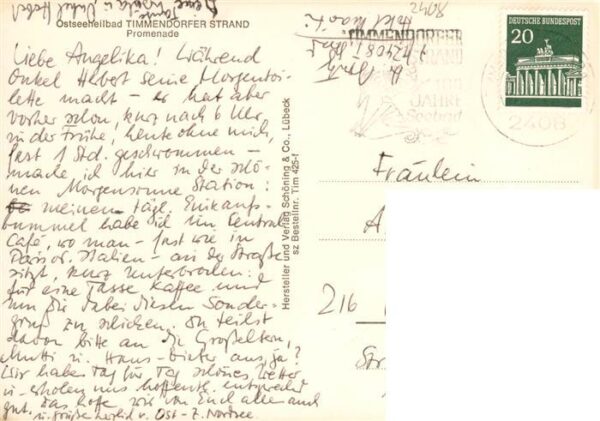 Ostseeheilbad TIMMENDORFER STRAND
Promenade
Liebe Angelika! Während
Onkel Hubert seine Morgentoi-
lette macht – er hat aber
vorher schon, kurz nach 6 Uhr,
in der Frühe, heute ohne mich,
fast 1 Std. geschwommen –
mache ich hier in der schö-
nen Morgensonne Station:
meinen tägl. Einkaufs-
bummel habe ich im Central
Café, wo man – fast wie in
Paris od. Italien – an der Straße
sitzt, kurz unterbrochen:
für eine Tasse Kaffee und
um Dir dabei diesen Sonder-
gruß zu schicken. Du teilst
davon bitte an die Großeltern,
Mutti u. Hans-Dieter aus, ja?
Wir haben Tag für Tag schönes Wetter
u. erholen uns hoffentl. entsprechd
gut. Das hoffe wir von Euch allen auch
u. grüße herzlich v. Ost- z. Nordsee.
Deine
Tante
u. Onkel Hubert
Hersteller und Verlag Schöning & Co., Lübeck
sz Bestellnr. Tim 425-f
8042
TIMMENDORFER
STRAND
JAHRE
Seebad
2408
DEUTSCHE BUNDESPOST
20
Fräulein
A
216
Str